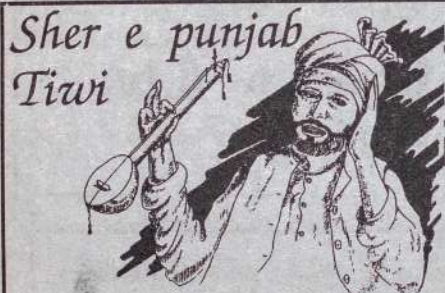 Sher e punjab
Tiwi